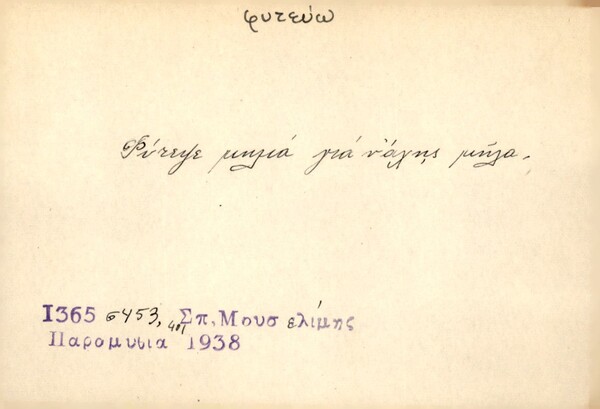 φυτεύω
Φύτεψε μηλιά γιά νἄχῃς μῆλα.
1365 σ453, 401 Σπ. Μουσελίμης
Παραμυθια 1938